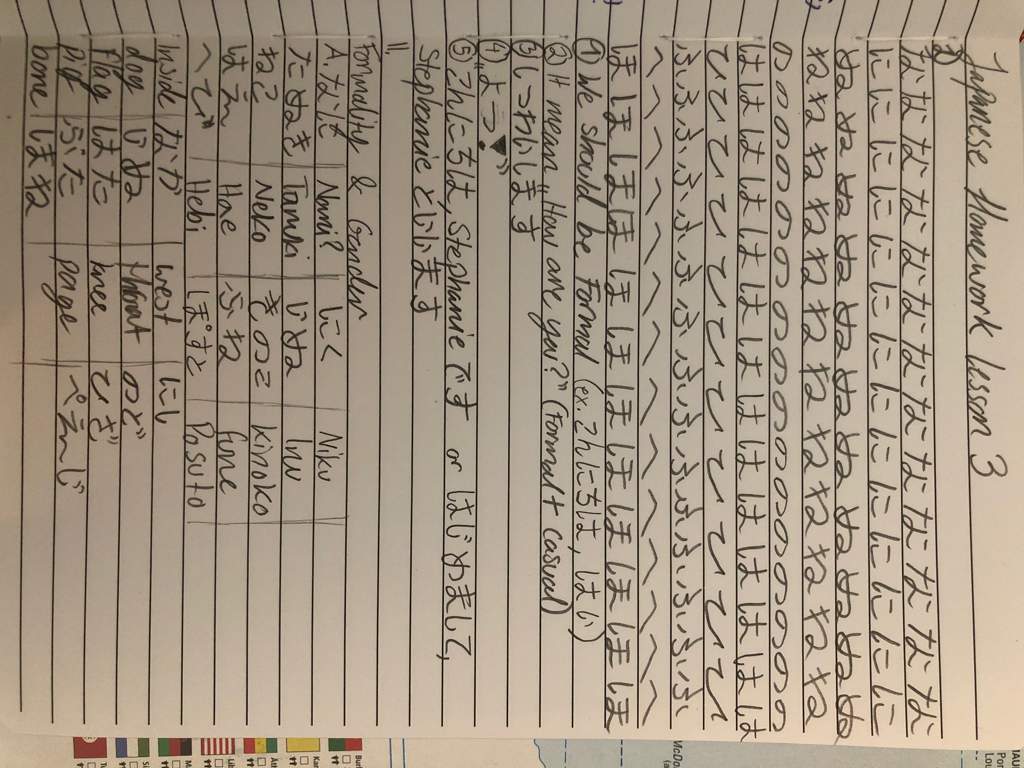 Japanese Homework Lesson 3
I)
なななななななななななななな
にににににににににににににに
ぬぬぬぬぬぬぬぬぬぬぬぬぬぬ
ねねねねねねねねねねねねねね
のののののののののののののののの
はははははははははははははは
ひひひひひひひひひひひひひ
ふふふふふふふふふふふふふふ
へへへへへへへへへへへへへ
ほほほほほほほほほほほほ
① We should be Formal (ex. こんにちは, はい)
② It mean "How are you?" (Formal + casual)
③ しつれいします
④ "よう"
⑤ こんにちは, Stephanie です or はじめまして,
Stephanie といいます
II
Formality & Gender
A. なに Nani? にく Niku
たぬき Tanuki いぬ Inu
ねこ Neko きのこ Kinoko
はえ Hae ふね fune
へび Hebi ぽすと Posuto
Inside なか west にし
dog いぬ throat のど
flag はた knee ひざ
pig ぶた page ぺえじ
bone ほね